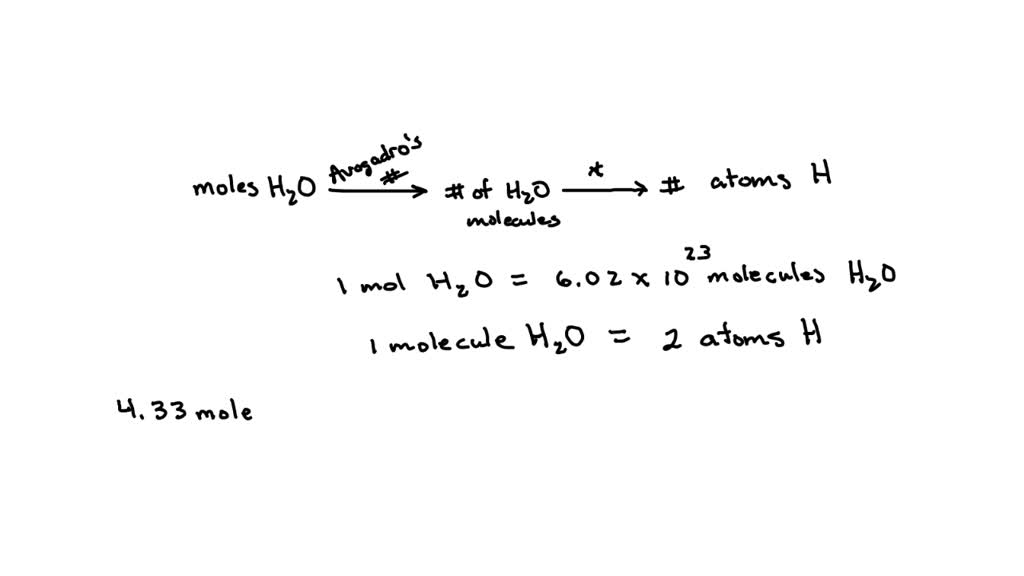 moles H₂O Avogadro's # → # of H₂O molecules * → # atoms H
1 mol H₂O = 6.02 x 10²³ molecules H₂O
1 molecule H₂O = 2 atoms H
4.33 mole